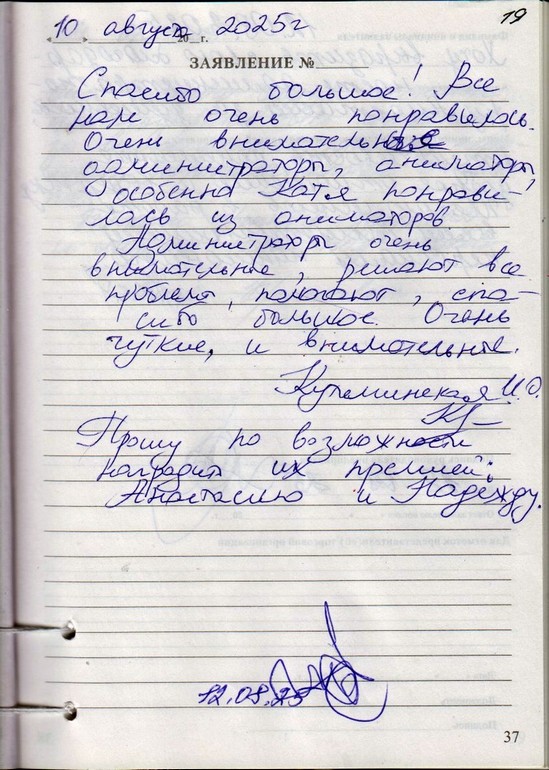 19
10 августа 2025г
« » 20 г.
ЗАЯВЛЕНИЕ №
Спасибо большое! Все
нам очень понравилось.
Очень внимательные
администраторы, аниматоры,
особенно Катя понрави-
лась из аниматоров.
Администраторы очень
внимательные, решают все
проблемы, помогают, спа-
сибо большое. Очень
чуткие, и внимательные.
И.О.
Прошу по возможности
наградить их премией:
Анастасию и Надежду.
12.08.25
37